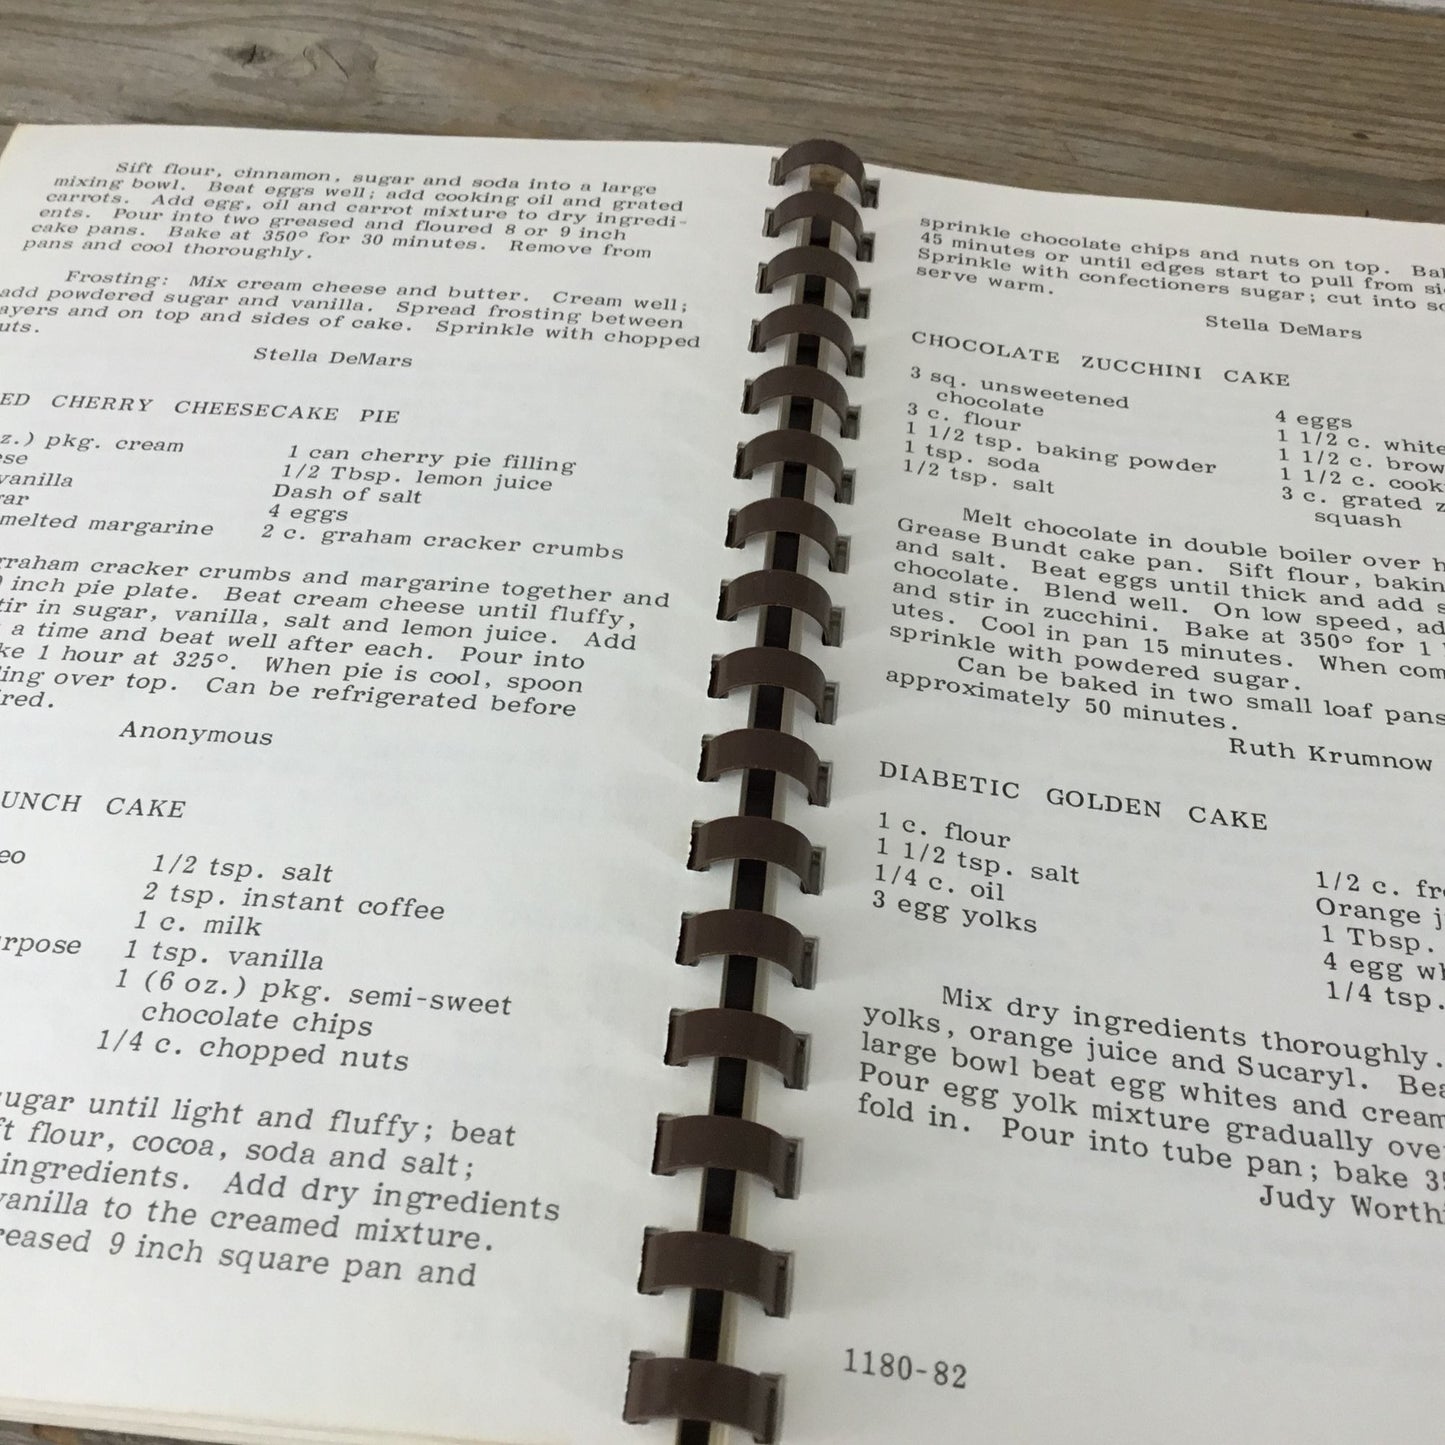 Sift flour, cinnamon, sugar and soda into a large
mixing bowl. Beat eggs well; add cooking oil and grated
carrots. Add egg, oil and carrot mixture to dry ingredi-
ents. Pour into two greased and floured 8 or 9 inch
cake pans. Bake at 350° for 30 minutes. Remove from
pans and cool thoroughly.
Frosting: Mix cream cheese and butter. Cream well;
add powdered sugar and vanilla. Spread frosting between
ayers and on top and sides of cake. Sprinkle with chopped
uts.
Stella DeMars
ED CHERRY CHEESECAKE PIE
z.) pkg. cream
ese
vanilla
ar
melted margarine
1 can cherry pie filling
1/2 Tbsp. lemon juice
Dash of salt
4 eggs
2 c. graham cracker crumbs
graham cracker crumbs and margarine together and
inch pie plate. Beat cream cheese until fluffy,
tir in sugar, vanilla, salt and lemon juice. Add
a time and beat well after each. Pour into
ke 1 hour at 325°. When pie is cool, spoon
ling over top. Can be refrigerated before
red.
Anonymous
UNCH CAKE
eo
rpose
1/2 tsp. salt
2 tsp. instant coffee
1 c. milk
1 tsp. vanilla
1 (6 oz.) pkg. semi-sweet
chocolate chips
1/4 c. chopped nuts
sugar until light and fluffy; beat
ft flour, cocoa, soda and salt;
ingredients. Add dry ingredients
vanilla to the creamed mixture.
reased 9 inch square pan and
sprinkle chocolate chips and nuts on top. Bak
45 minutes or until edges start to pull from si
Sprinkle with confectioners sugar; cut into s
serve warm.
Stella DeMars
CHOCOLATE ZUCCHINI CAKE
3 sq. unsweetened
chocolate
3 c. flour
1 1/2 tsp. baking powder
1 tsp. soda
1/2 tsp. salt
4 eggs
1 1/2 c. white
1 1/2 c. brow
1 1/2 c. cook
3 c. grated z
squash
Melt chocolate in double boiler over h
Grease Bundt cake pan. Sift flour, bakin
and salt. Beat eggs until thick and add s
chocolate. Blend well. On low speed, ad
and stir in zucchini. Bake at 350° for 1
utes. Cool in pan 15 minutes. When com
sprinkle with powdered sugar.
Can be baked in two small loaf pans
approximately 50 minutes.
Ruth Krumnow
DIABETIC GOLDEN CAKE
1 c. flour
1 1/2 tsp. salt
1/4 c. oil
3 egg yolks
1/2 c. fr
Orange j
1 Tbsp.
4 egg wh
1/4 tsp.
Mix dry ingredients thoroughly.
yolks, orange juice and Sucaryl. Bea
large bowl beat egg whites and cream
Pour egg yolk mixture gradually ove
fold in. Pour into tube pan; bake 3
Judy Worth
1180-82